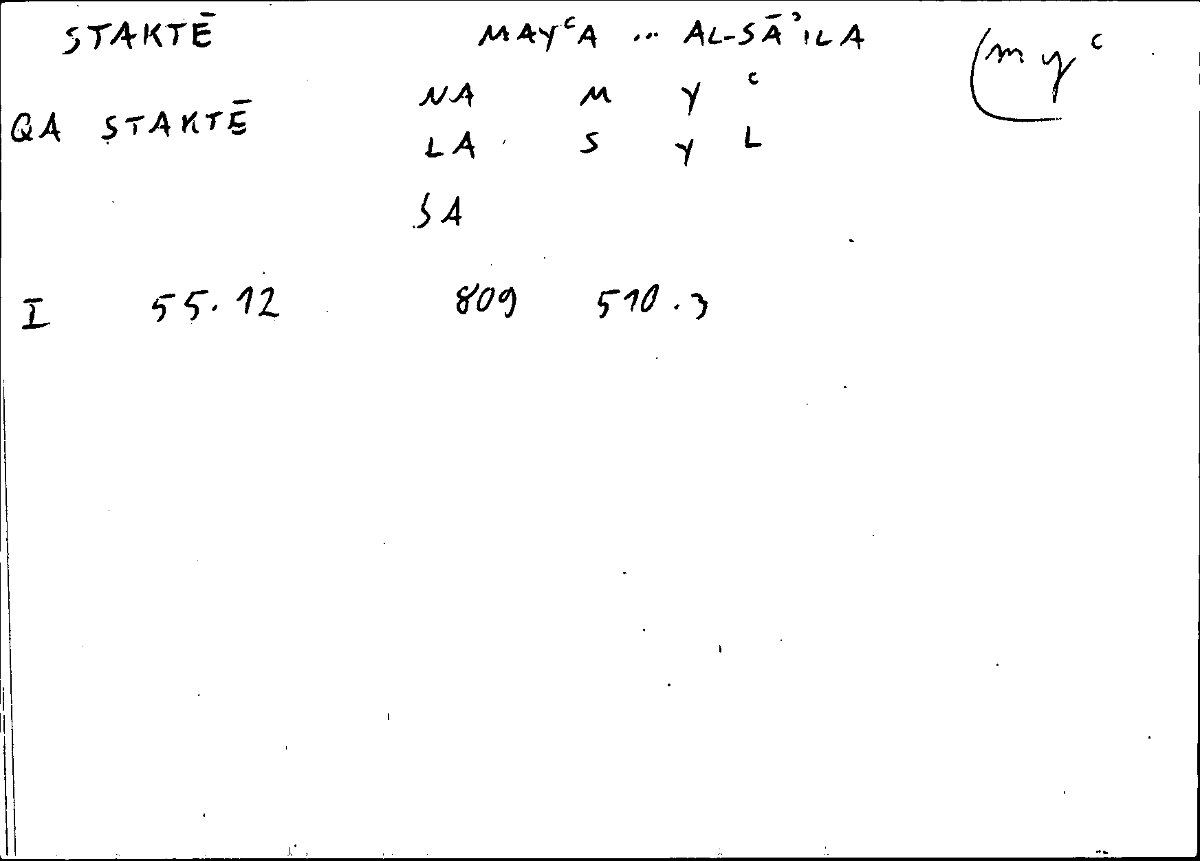 STAKTĒ MAYᶜA ... AL-SĀʾILA (m y ᶜ
QA STAKTĒ NA M Y ᶜ
LA S Y L
SA
I 55.12 809 510.3